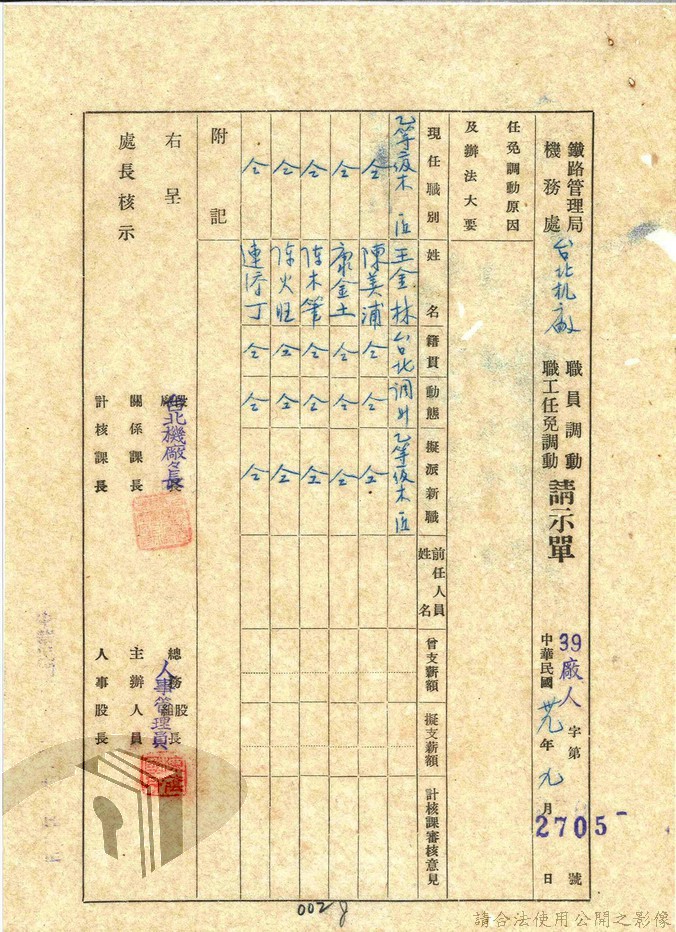 鐵路管理局
機務處 台北机廠
職員調動
職工任免調動
請示單
39廠人字第2705號
中華民國卅九年九月 日
任免調動原因
及辦法大要
現任職別 姓名 籍貫 動態 擬派新職 前任人員姓名 曾支薪額 擬支薪額 計核課審核意見
乙等技木匠 王金林 台北 調升 乙等伎木匠
仝 陳美浦 仝 仝 仝
仝 康金土 仝 仝 仝
仝 陈木筆 仝 仝 仝
仝 陈火旺 仝 仝 仝
仝 連添丁 仝 仝 仝
附記
右呈
處長核示
台北機廠廠長
關係課長
計核課長
總務組股長
人事管理員
主辦人員
人事股長
002 8
請合法使用公開之影像